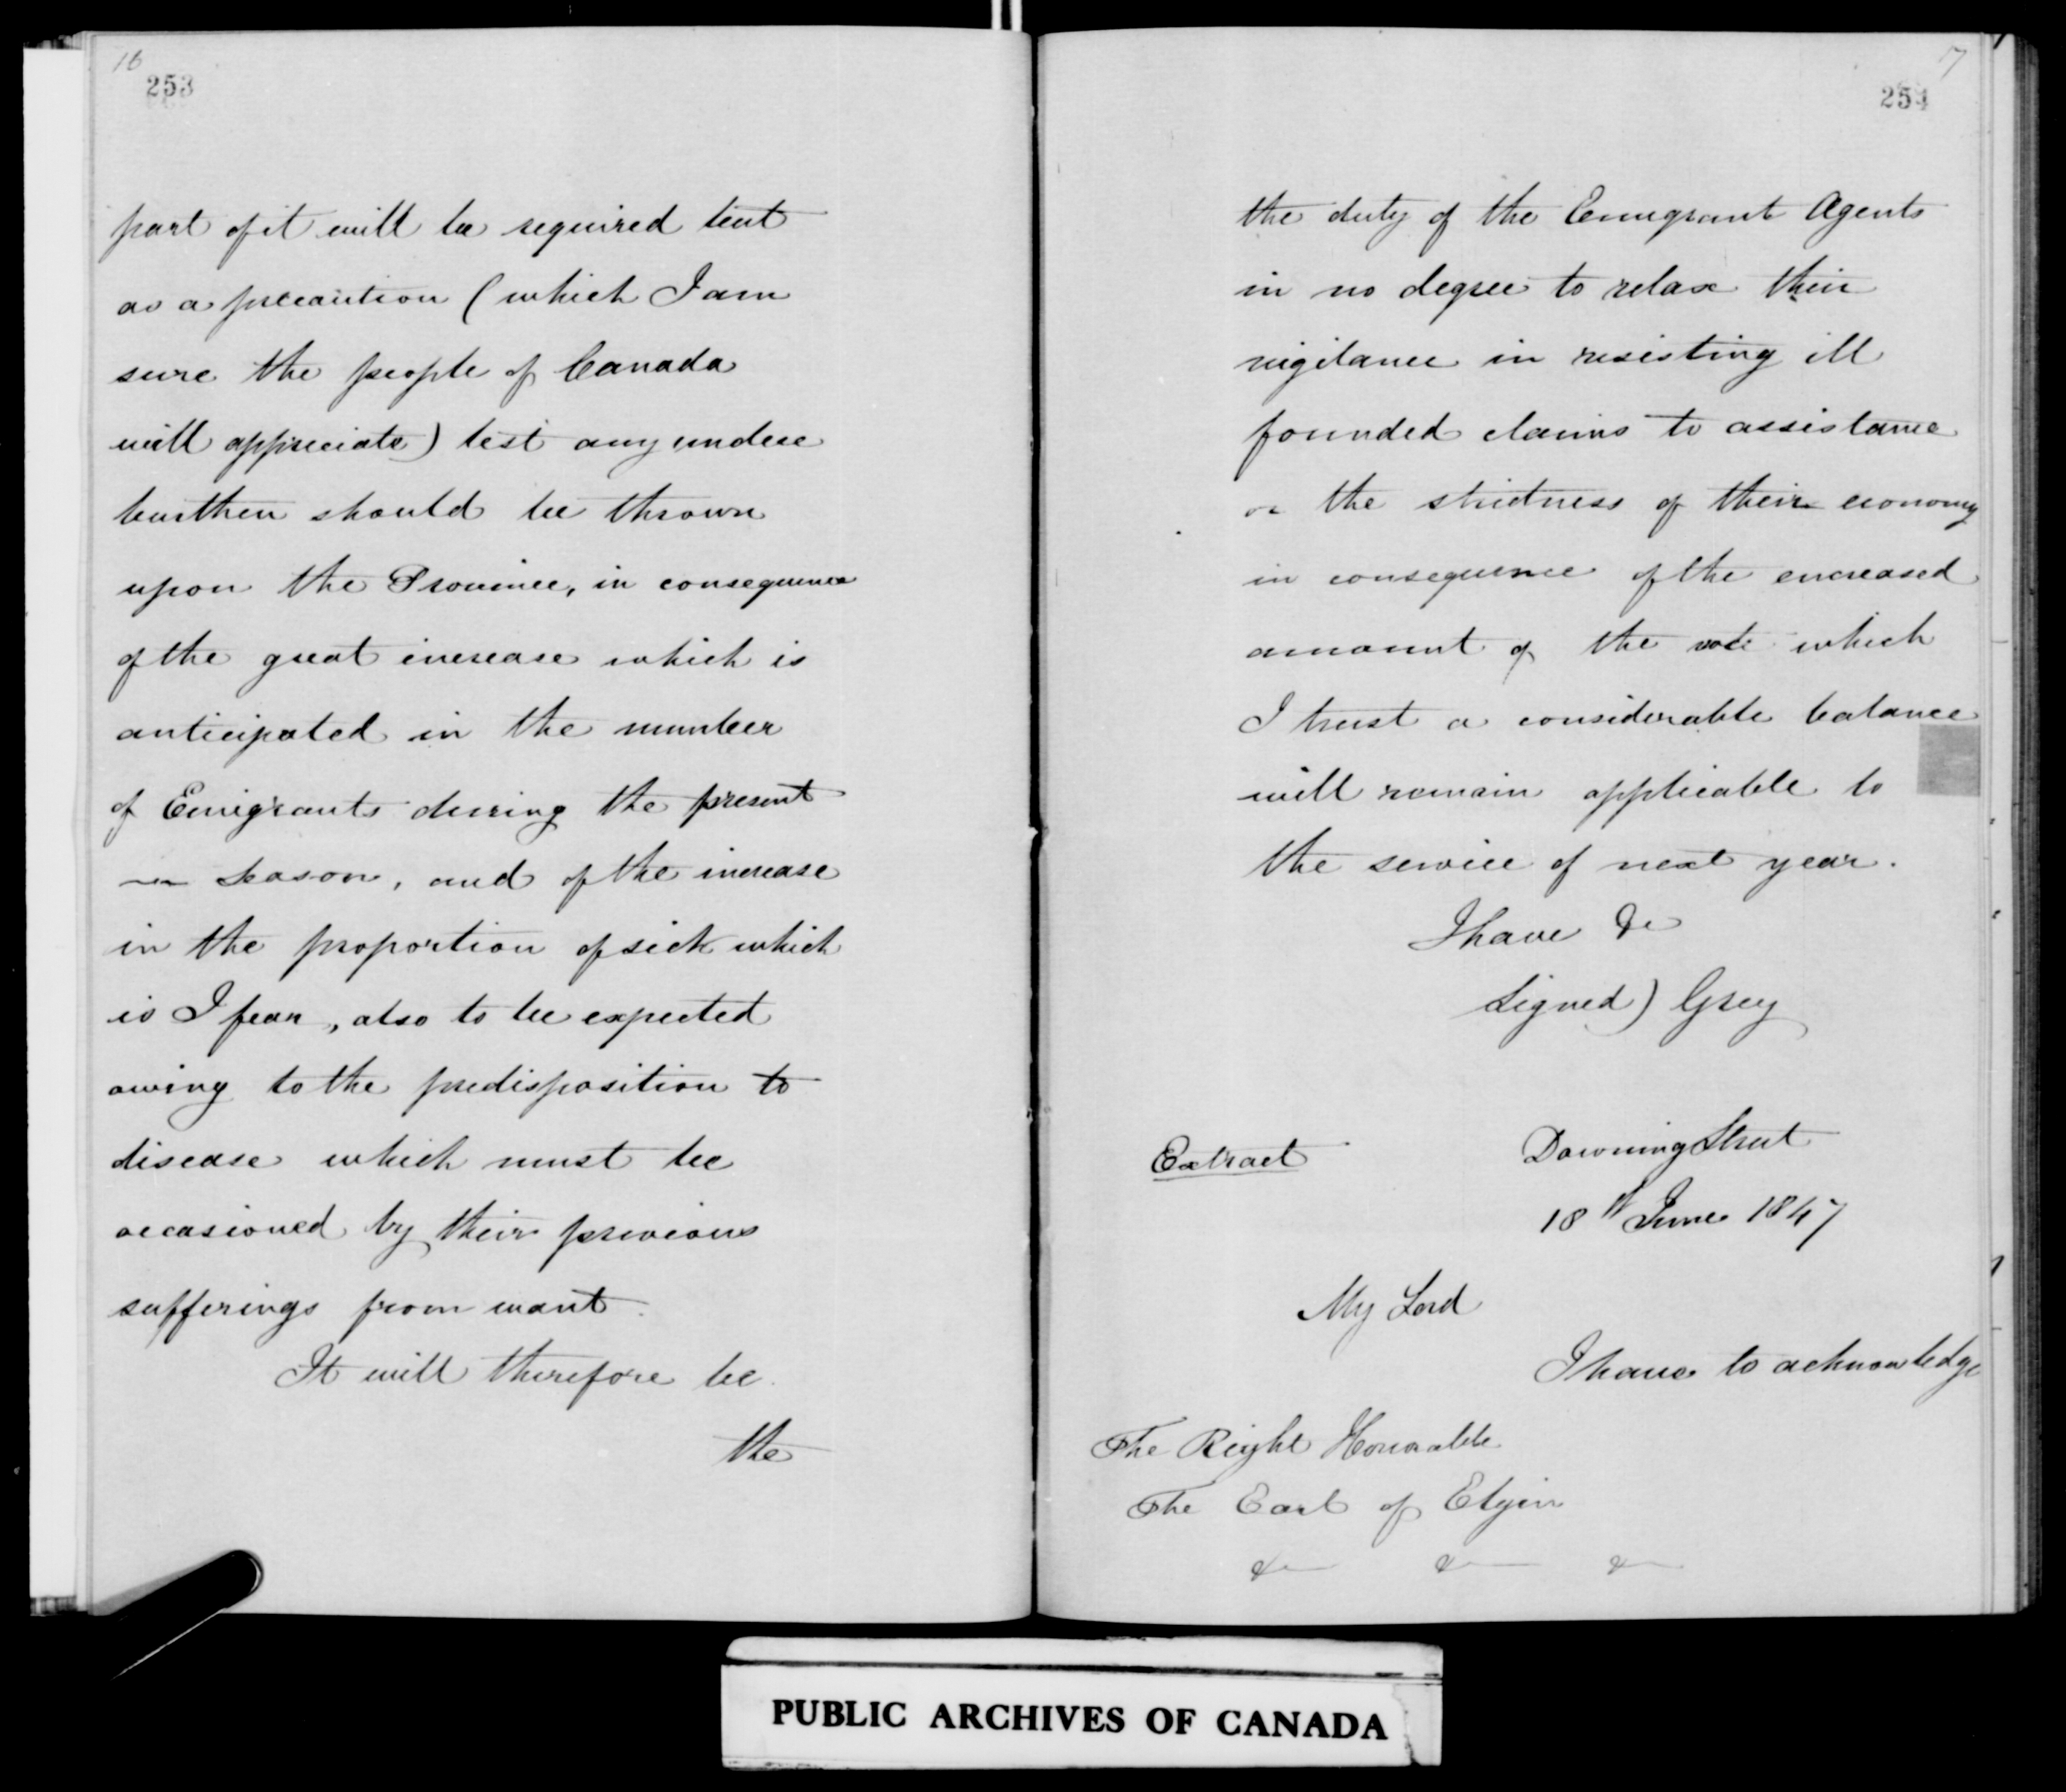 16
253
part of it will be required but
as a precaution (which I am
sure the people of Canada
will appreciate) lest any undue
burthen should be thrown
upon the Province, in consequence
of the great increase which is
anticipated in the number
of Emigrants during the present
season, and of the increase
in the proportion of sick which
is I fear, also to be expected
owing to the predisposition to
disease which must be
occasioned by their previous
sufferings from want.
It will therefore be
the
17
254
the duty of the Emigrant Agents
in no degree to relax their
vigilance in resisting ill
founded claims to assistance
or the strictness of their economy
in consequence of the encreased
amount of the vote which
I trust a considerable balance
will remain applicable to
the service of next year.
I have &c
Signed) Grey
Extract
Downing Street
18th June 1847
My Lord
I have to acknowledge
The Right Honorable
The Earl of Elgin
&c &c &c
PUBLIC ARCHIVES OF CANADA